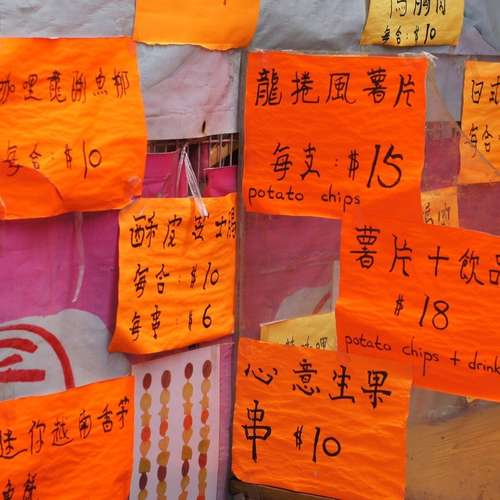 每合:$10
咖哩龍脷魚柳
每合:$10
龍捲風薯片
每支:$15
potato chips
日式
每合
酥皮
每合:$10
每串:$6
薯片+飲品
$18
potato chips + drink
咖哩
心意生果
串 $10
迷你越南香芋